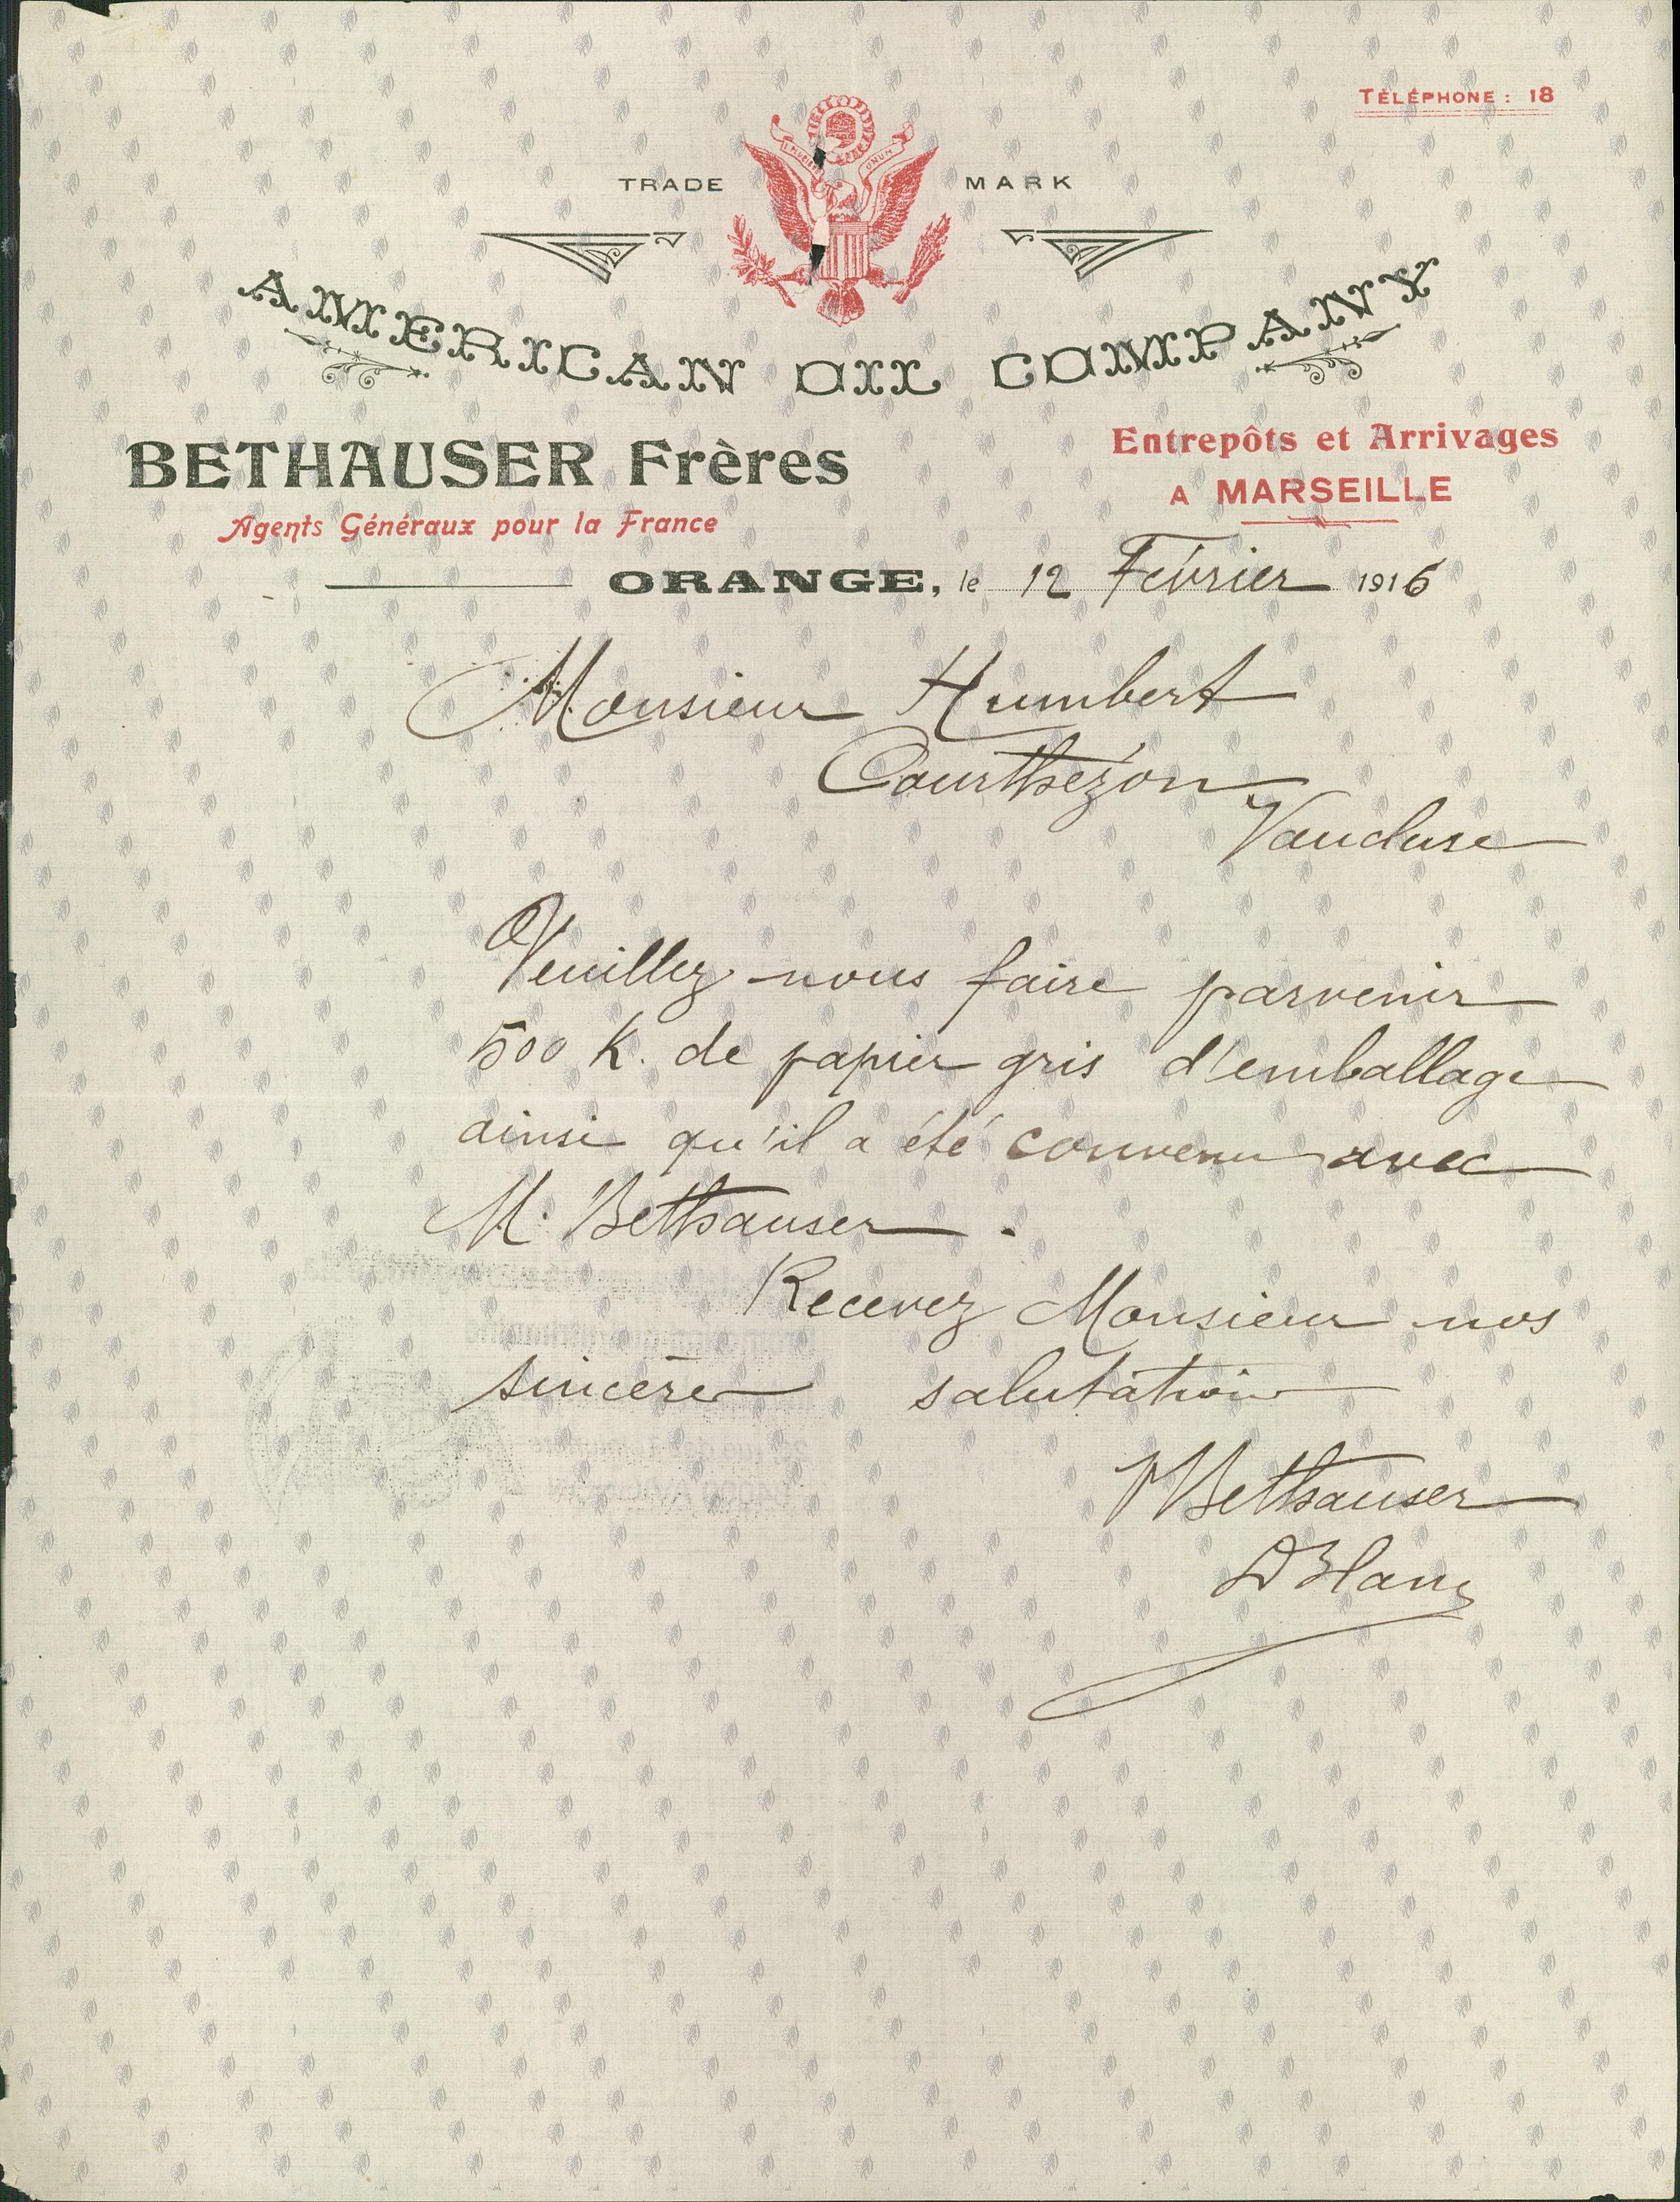 TÉLÉPHONE : 18
TRADE MARK
AMERICAN OIL COMPANY
BETHAUSER Frères
Entrepôts et Arrivages
A MARSEILLE
Agents Généraux pour la France
ORANGE, le 12 Février 1916
Monsieur Humbert
Courthézon
Vaucluse
Veuillez nous faire parvenir
500 K. de papier gris d'emballage
ainsi qu'il a été convenu avec
M. Bethauser.
Recevez Monsieur nos
sincères salutations
Bethauser